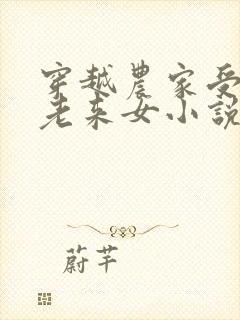 穿越農家受
老来女小説
蔚芊